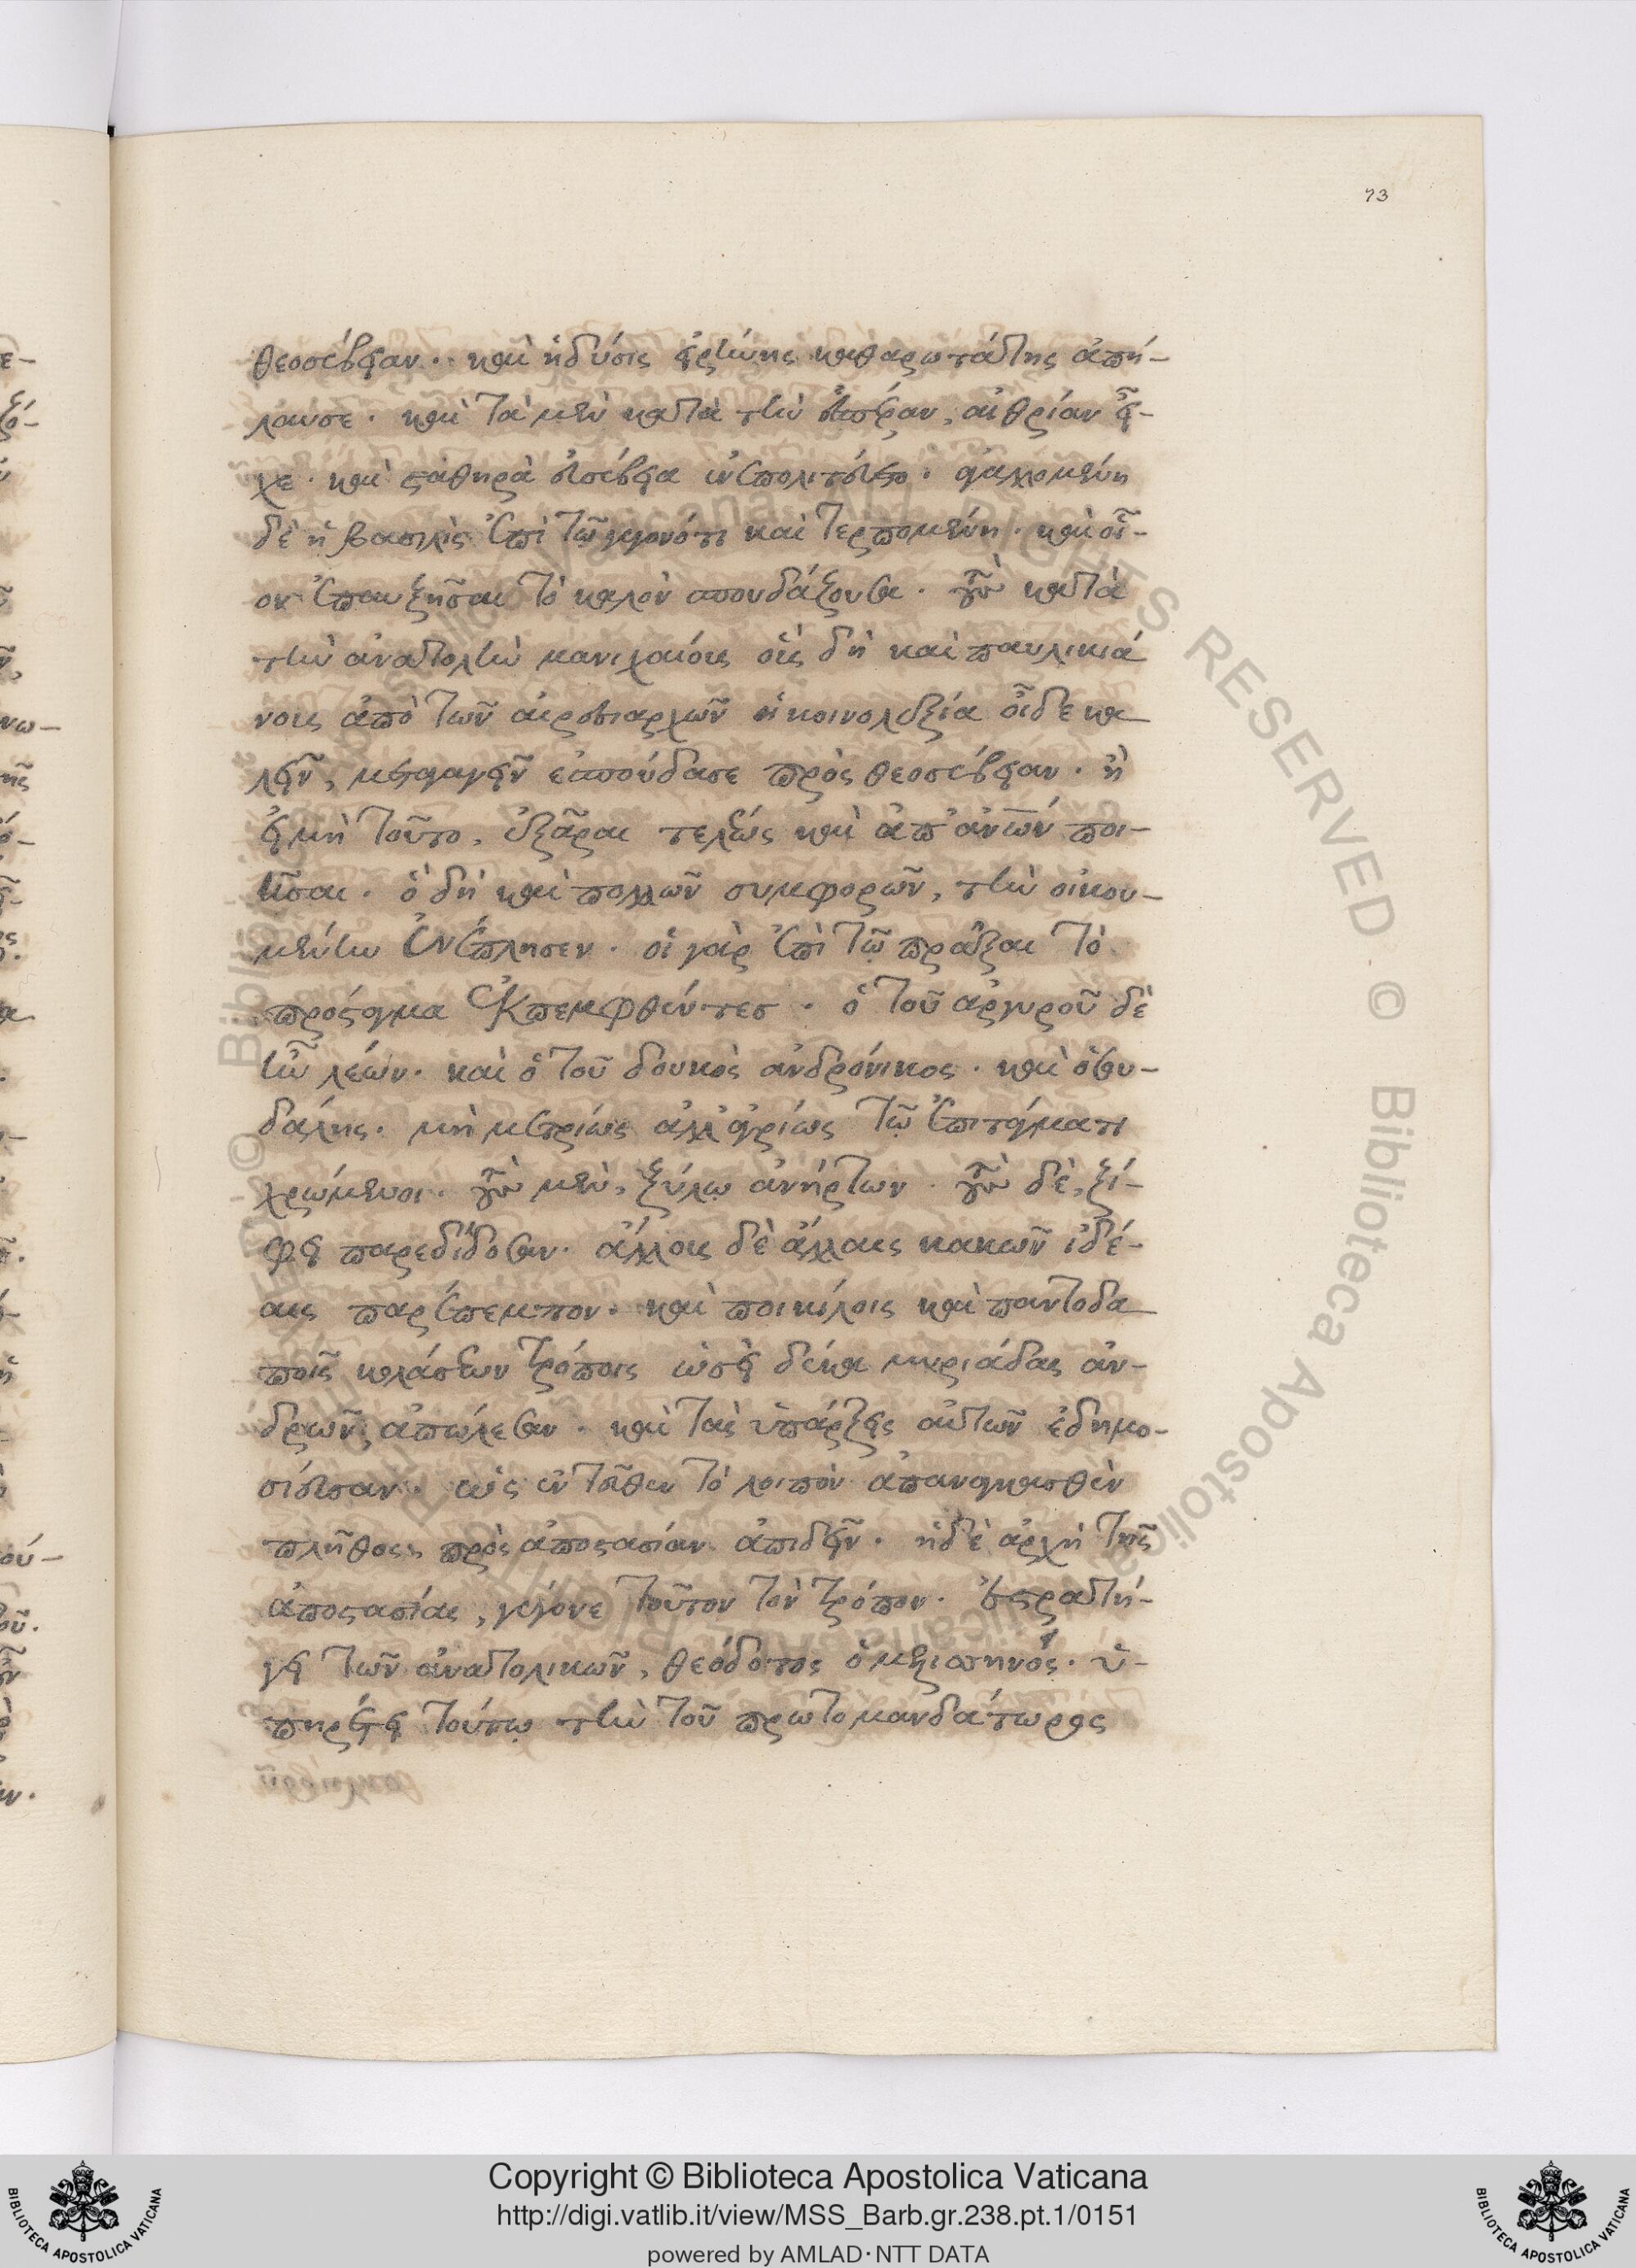 73
θεοσέβειαν. καὶ ἡ δύσις εἰρήνης καθαρωτάτης ἀπή-
λαυσε. καὶ τὰ μὲν κατὰ τὴν ἑσπέραν, αἰθρίαν εἶ-
χε. καὶ σταθηρὰ εὐσέβεια ἐνεπολιτεύετο. ἀγαλλομένη
δὲ ἡ βασιλὶς ἐπὶ τῷ γεγονότι καὶ τερπομένη. καὶ οἷ-
ον ἐπαυξῆσαι τὸ καλὸν σπουδάζουσα. τοὺς κατὰ
τὴν ἀνατολὴν μανιχαίοις οἷς δὴ καὶ παυλικιά
νοις ἀπὸ τῶν αἱρεσιαρχῶν ἡ κοινολεξία οἶδε κα
λεῖν, μεταγαγεῖν ἐσπούδασε πρὸς θεοσέβειαν. ἢ
εἰ μὴ τοῦτο, ἐξᾶραι τελέως καὶ ἀπ' ἀνῶν ποι-
ῆσαι. ὃ δὴ καὶ πολλῶν συμφορῶν, τὴν οἰκου-
μένην ἐνέπλησεν. οἱ γὰρ ἐπὶ τῷ πρᾶξαι τὸ
πρόσταγμα ἐκπεμφθέντες. ὁ τοῦ ἀργυροῦ δὲ
ἦν λέων. καὶ ὁ τοῦ δουκὸς ἀνδρόνικος. καὶ ὁ σου-
δάλης. μὴ μετρίως ἀλλ' ἀγρίως τῷ ἐπιτάγματι
χρώμενοι. τοὺς μὲν, ξύλῳ ἀνήρτων. τοὺς δὲ, ξί-
φει παρεδίδοσαν. ἄλλοις δὲ ἄλλαις κακῶν ἰδέ-
αις παρέπεμπον. καὶ ποικίλοις καὶ παντοδα
ποῖς κολάσεων τρόποις ὡσεὶ δέκα μυριάδας ἀν-
δρῶν, ἀπώλεσαν. καὶ τὰς ὑπάρξεις αὐτῶν ἐδημο-
σίευσαν. ὡς ἐντεῦθεν τὸ λοιπὸν ἀπαναγκασθὲν
πλῆθος, πρὸς ἀποστασίαν ἀπιδεῖν. ἡ δὲ ἀρχὴ τῆς
ἀποστασίας, γέγονε τοῦτον τὸν τρόπον. ἐστρατή-
γει τῶν ἀνατολικῶν, θεόδοτος ὁ μελισσηνός. ὑ-
πηρέτει τούτῳ τὴν τοῦ πρωτομανδάτωρος
Copyright © Biblioteca Apostolica Vaticana
http://digi.vatlib.it/view/MSS_Barb.gr.238.pt.1/0151
powered by AMLAD·NTT DATA
BIBLIOTECA APOSTOLICA VATICANA
BIBLIOTECA APOSTOLICA VATICANA